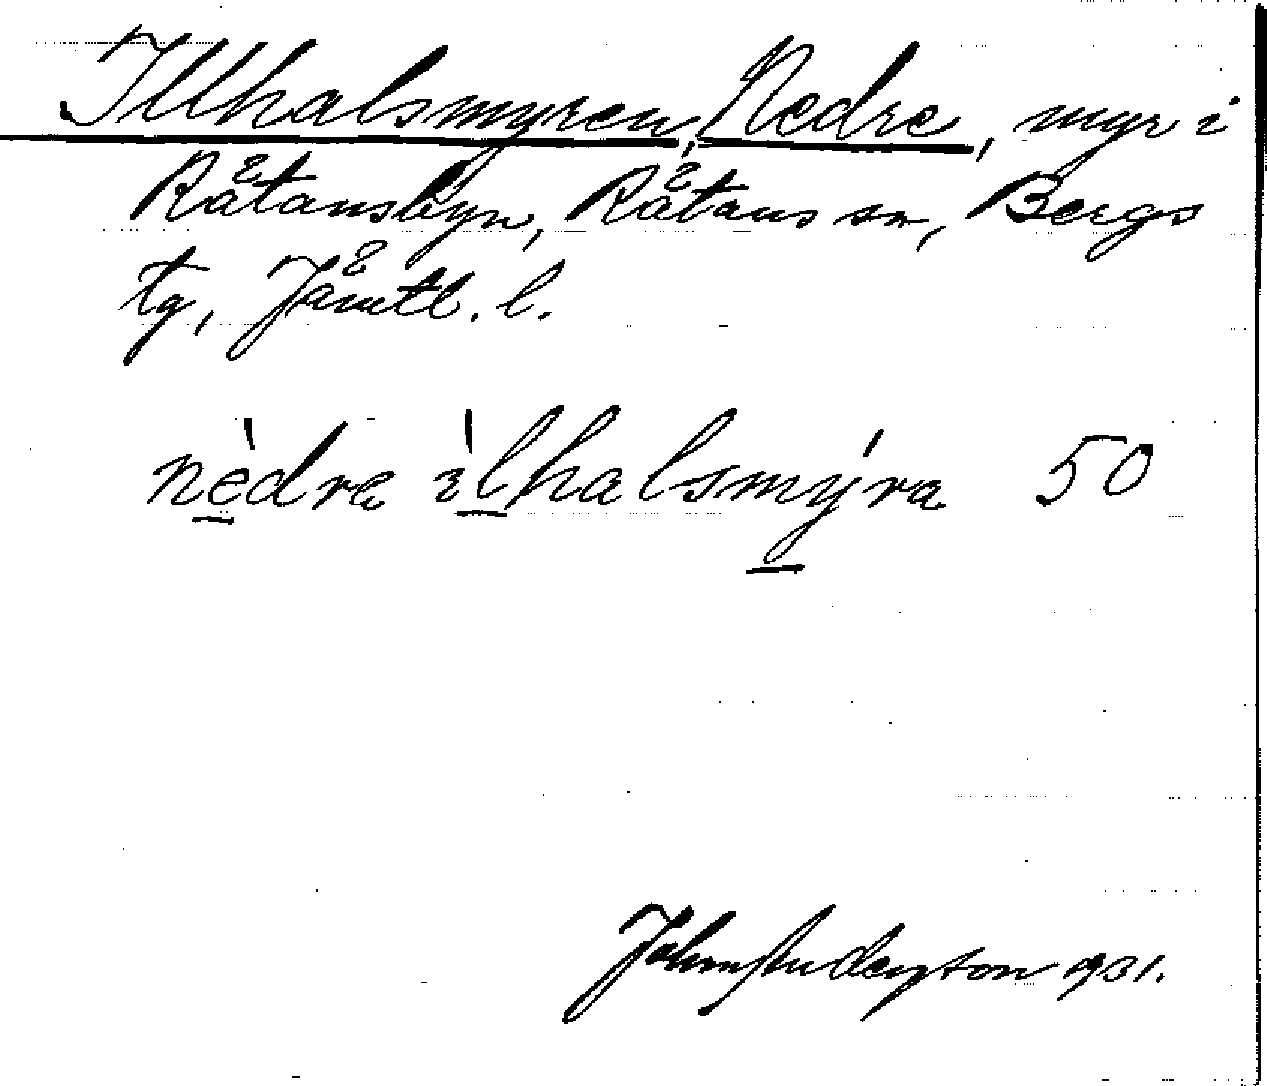 Illhalsmyren, Nedre, myr i
Råtansbyn, Råtans sn, Bergs
tg, Jämtl. l.
nèdre ìlhalsmýra 50
John Anderzton 1931.